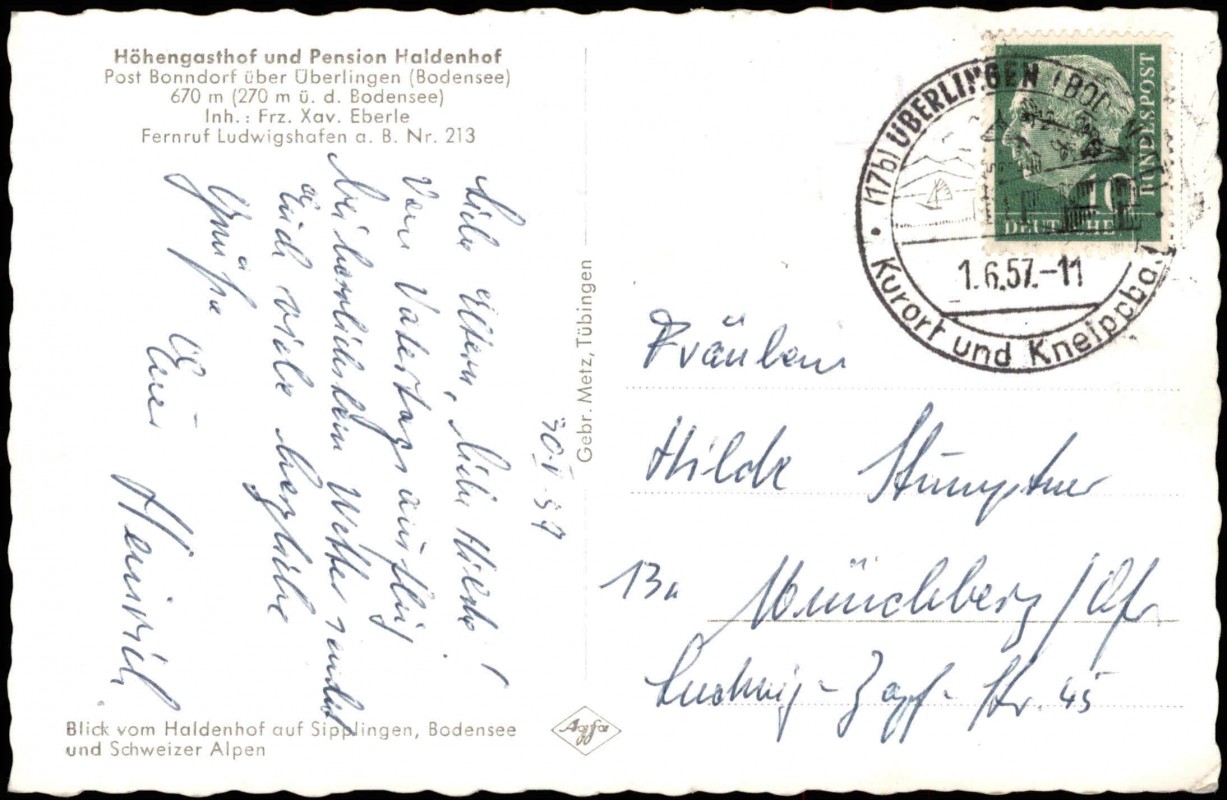 Höhengasthof und Pension Haldenhof
Post Bonndorf über Überlingen (Bodensee)
670 m (270 m ü. d. Bodensee)
Inh.: Frz. Xav. Eberle
Fernruf Ludwigshafen a. B. Nr. 213
30.V.57
Liebe Eltern, liebe Hilde!
Vom Vatertagsausflug
bei herrlichstem Wetter sendet
Euch viele herzliche
Grüße Euer
Heinrich
Blick vom Haldenhof auf Sipplingen, Bodensee
und Schweizer Alpen
Gebr. Metz, Tübingen
Agfa
(17b) ÜBERLINGEN (BOD
1.6.57.-11
Kurort und Kneippbad
DEUTSCHE
BUNDESPOST
10
Fräulein
Hilde Stumptner
13a Münchberg/Ofr.
Ludwig-Zapf-Str. 45